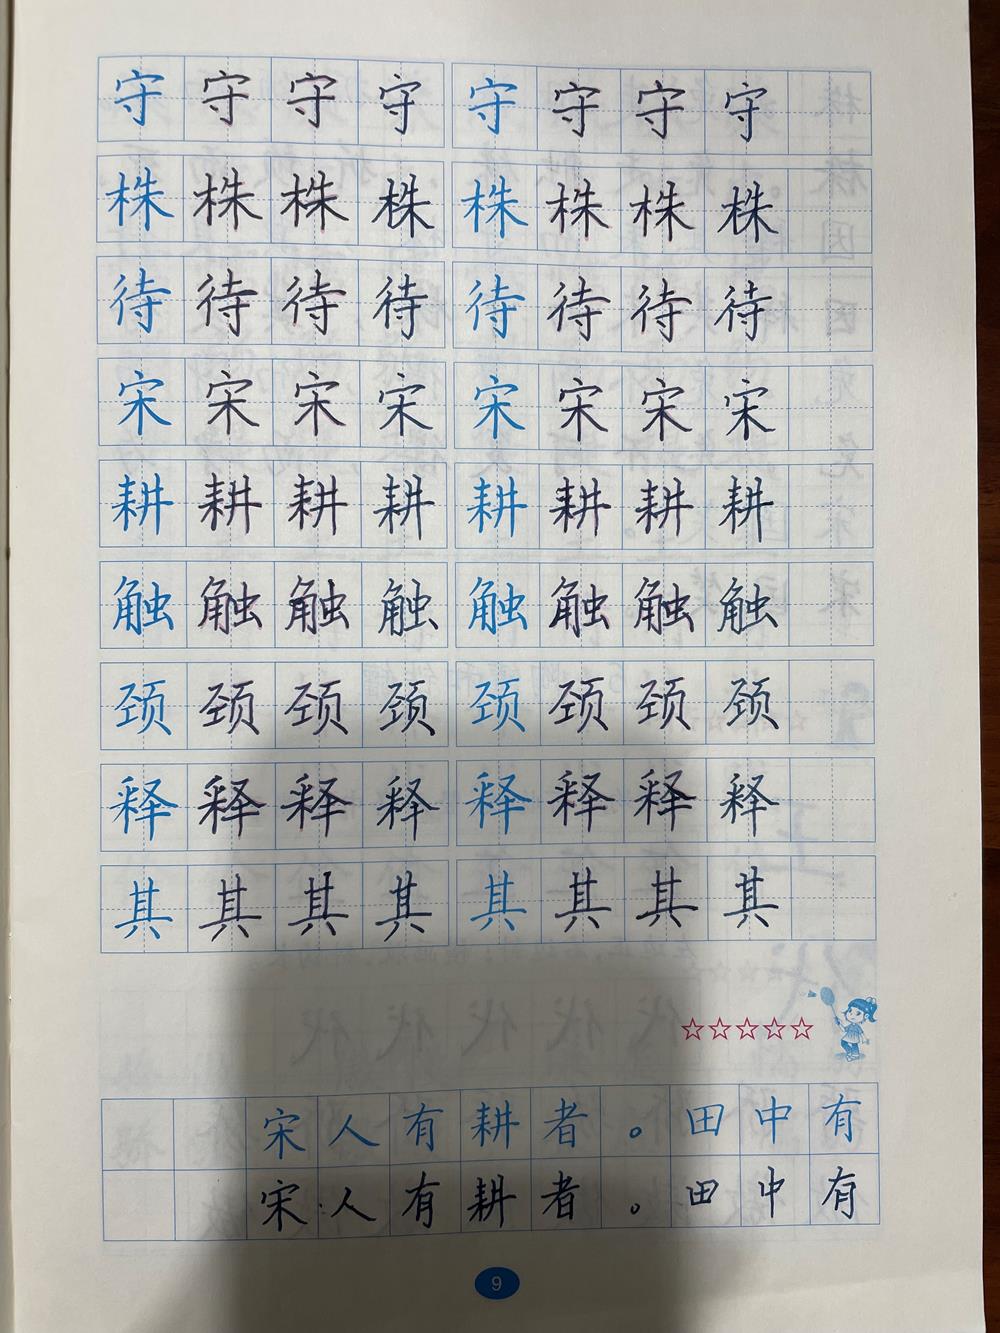 守守守守守守守守
株株株株株株株株
待待待待待待待待
宋宋宋宋宋宋宋宋
耕耕耕耕耕耕耕耕
触触触触触触触触
颈颈颈颈颈颈颈颈
释释释释释释释释
其其其其其其其其
☆☆☆☆☆
宋人有耕者。田中有
宋人有耕者。田中有
9